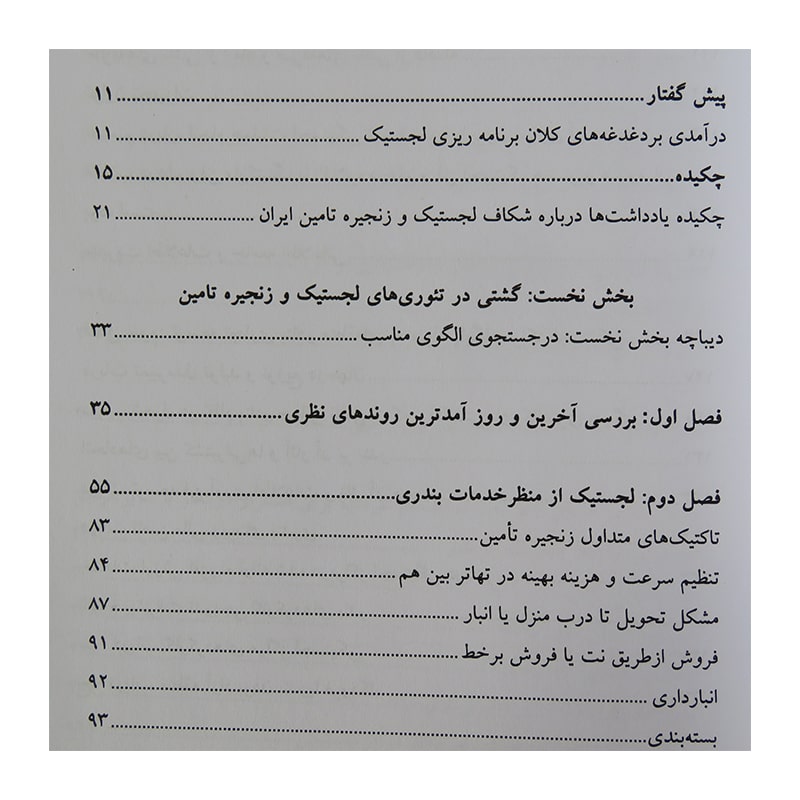 پیش گفتار ........ ۱۱
درآمدی بردغدغه‌های کلان برنامه ریزی لجستیک ........ ۱۱
چکیده ........ ۱۵
چکیده یادداشت‌ها درباره شکاف لجستیک و زنجیره تامین ایران ........ ۲۱
بخش نخست: گشتی در تئوری‌های لجستیک و زنجیره تامین
دیباچه بخش نخست: درجستجوی الگوی مناسب ........ ۳۳
فصل اول: بررسی آخرین و روز آمدترین روندهای نظری ........ ۳۵
فصل دوم: لجستیک از منظرخدمات بندری ........ ۵۵
تاکتیک‌های متداول زنجیره تأمین ........ ۸۳
تنظیم سرعت و هزینه بهینه در تهاتر بین هم ........ ۸۴
مشکل تحویل تا درب منزل یا انبار ........ ۸۷
فروش ازطریق نت یا فروش برخط ........ ۹۱
انبارداری ........ ۹۲
بسته‌بندی ........ ۹۳